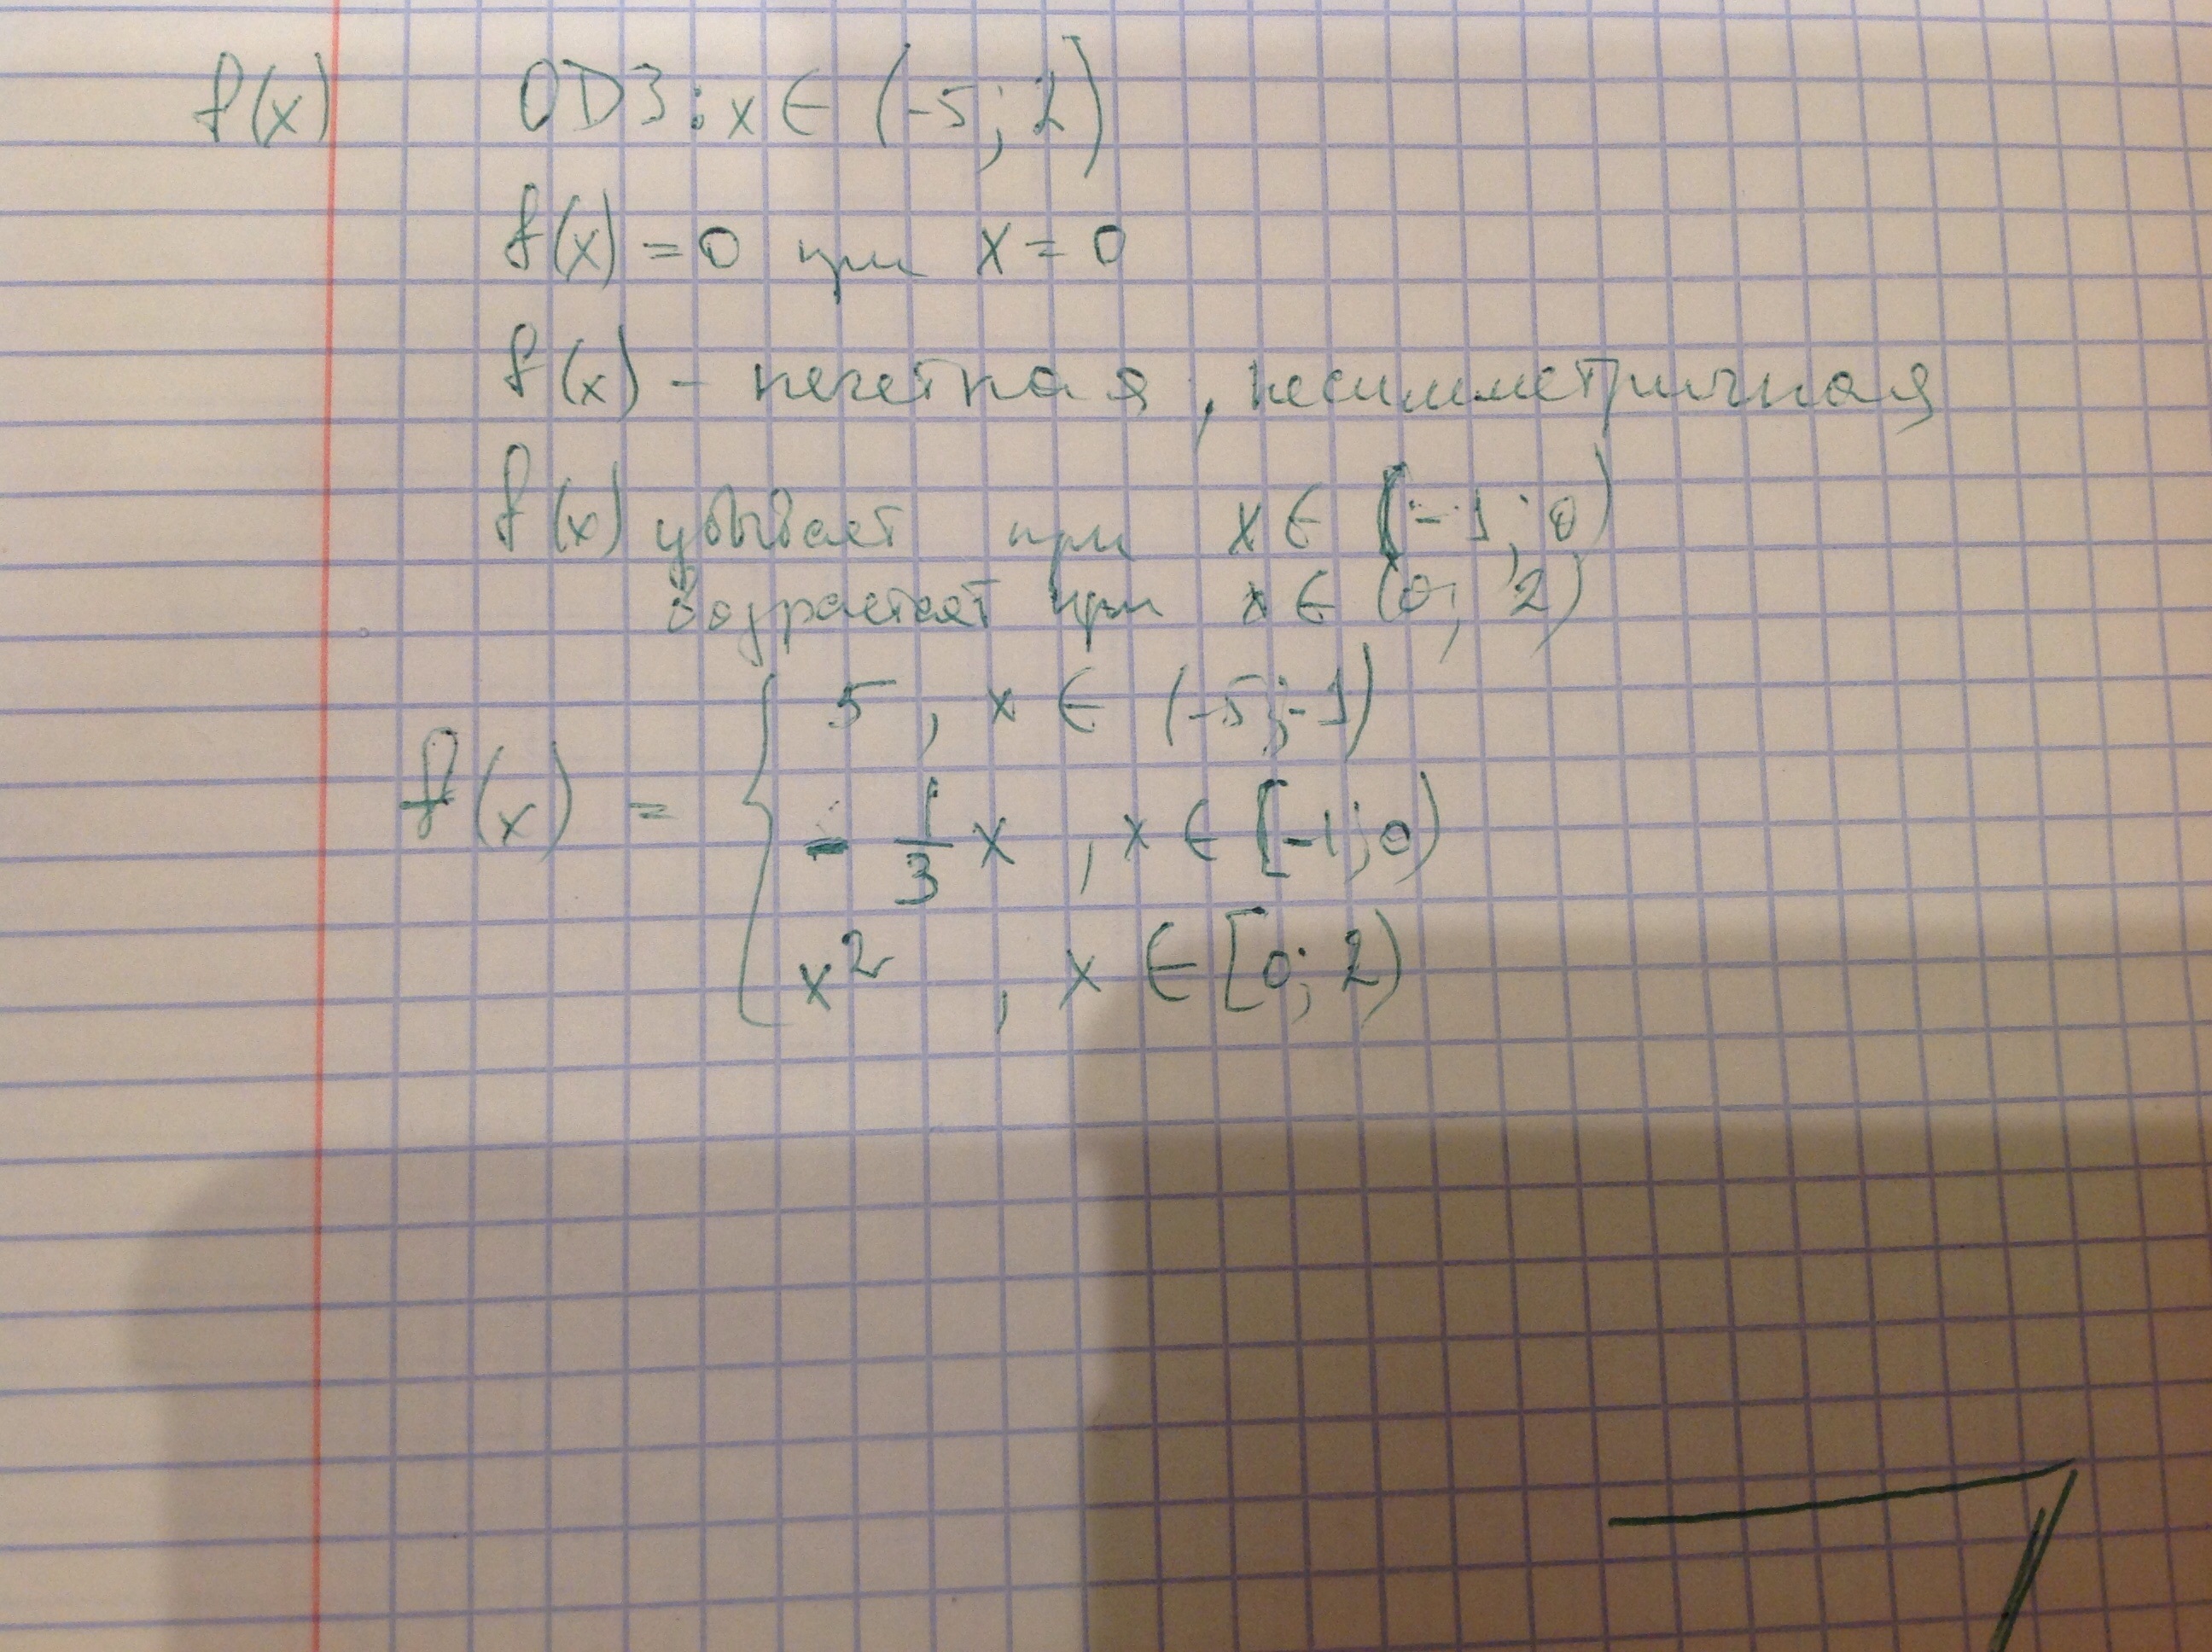 f(x) ОДЗ: x ∈ (-5; 2)
f(x) = 0 при x = 0
f(x) - нечетная, несимметричная
f(x) убывает при x ∈ (-1; 0)
возрастает при x ∈ (0; 2)
5, x ∈ (-5; -1)
f(x) = { - 1/3 x, x ∈ [-1; 0)
x², x ∈ [0; 2)